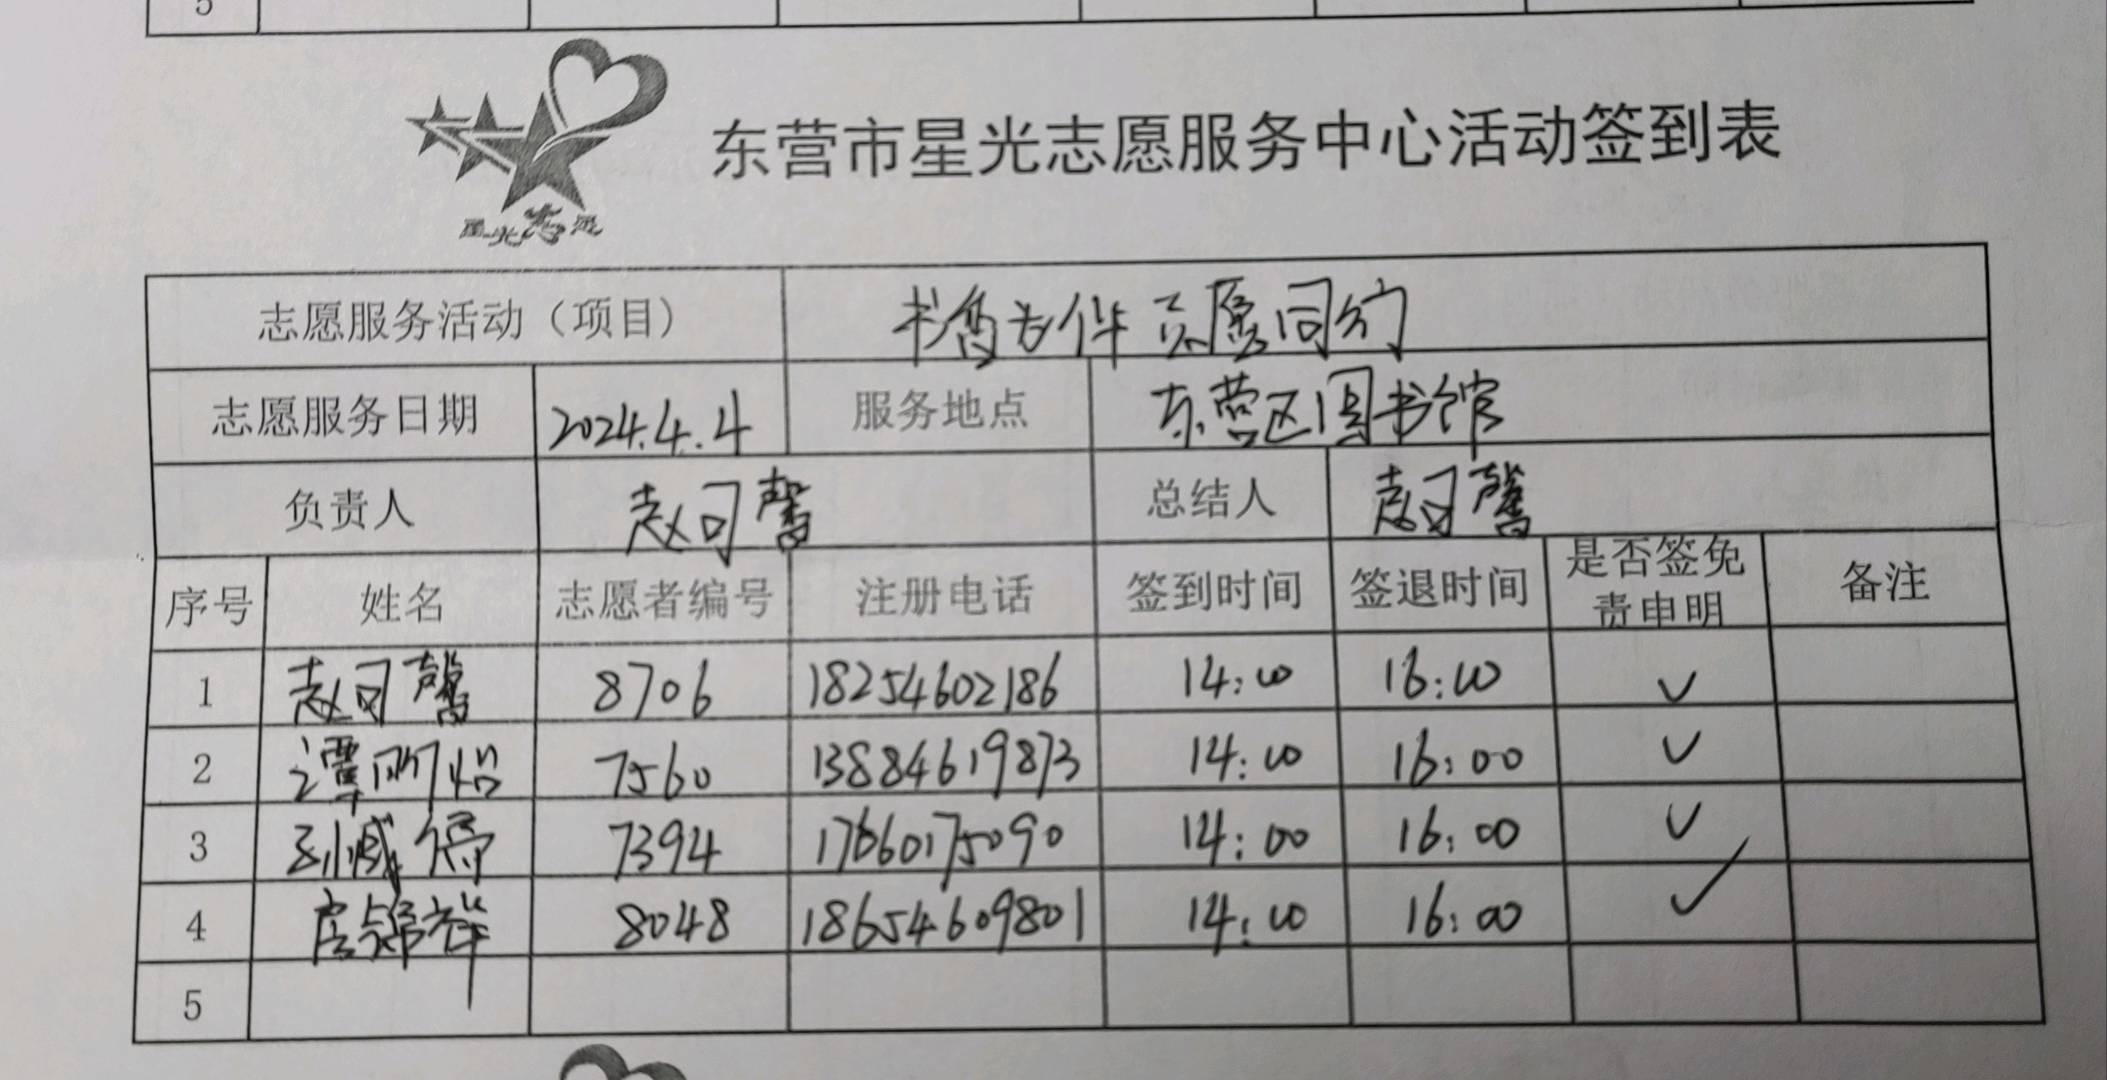 5
星光志愿
东营市星光志愿服务中心活动签到表
志愿服务活动（项目） 书香为伴 志愿同行
志愿服务日期 2024.4.4 服务地点 东营区图书馆
负责人 赵可馨 总结人 赵可馨
序号 姓名 志愿者编号 注册电话 签到时间 签退时间 是否签免责申明 备注
1 赵可馨 8706 18254602186 14:00 16:00 ✓
2 谭雨恬 7560 13884619873 14:00 16:00 ✓
3 7394 17660175090 14:00 16:00 ✓
4 8048 18654609801 14:00 16:00 ✓
5